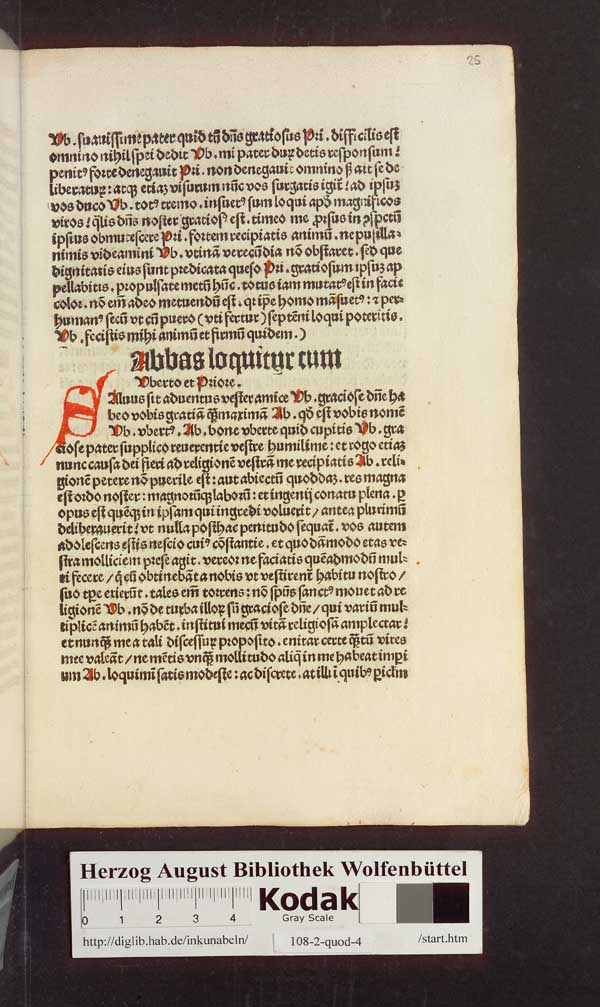 25
Ub. suauissime pater quid tñ dñs gratiosus Pri. difficilis est
omnino nihil spei dedit Ub. mi pater duꝝ detis responsum!
penitꝰ forte denegauit Pri. non denegauit omnino sꝫ ait se de
liberaturꝝ: atqꝫ etiaꝫ visurum nūc vos surgatis igit̄! ad ipsuꝫ
vos duco Ub. totꝰ tremo. insuetꝰ sum loqui apđ magnificos
viros! q̄lis dñs noster gratiosꝰ est. timeo me ꝓrsus in ꝯspctū
ipsius obmutescere Pri. fortem recipiatis animū. ne pusilla-
nimis videamini Ub. vtinā verecūdia nō obstaret. sed que
dignitatis eius sunt predicata queso Pri. gratiosum ipsuꝫ ap
pellabitis. propulsate metū hūc. totus iam mutatꝰ est in facie
color. nō em̄ adeo metuendū est. qꝛ ip̄e homo māsuetꝰ: ⁊ per-
humanꝰ secū vt cū puero (vti fertur) septēni loqui poteritis.
Ub. fecistis mihi animū et firmū quidem.)
Abbas loquitur cum
Uberto et Priore.
Saluus sit aduentus vester amice Ub. graciose dn̄e ha
beo vobis gratiā qͣmaximā Ab. qđ est vobis nomē
Ub. vbertꝰ. Ab. bone vberte quid cupitis Ub. gra
ciose pater supplico reuerentie vestre humilime: et rogo etiaꝫ
nunc causa dei fieri ad religionē vestrā me recipiatis Ab. reli-
gionē petere nō puerile est: aut abiectū quoddaꝫ. res magna
est ordo noster: magnorūqꝫ laborū: et ingenij conatu plena. ꝑ
opus est quēqꝫ in ipsam qui ingredi voluerit / antea plurimū
deliberauerit! vt nulla posthac penitudo sequat̄. vos autem
adolescens estis nescio cuiꝰ cōstantie. et quodāmodo etas ve-
stra molliciem prese agit. vereor ne faciatis quēadmodū mul-
ti fecere / q̄ cū obtinebāt a nobis vt vestirent̄ habitu nostro /
suo tp̄e exierūt. tales em̄ torrens: nō spūs sanctꝰ mouet ad re
ligionē Ub. nō de turba illoꝝ sū graciose dn̄e / qui variū mul-
tiplicē animū habēt. institui mecū vitā religiosā amplectar!
et nunqꝫ me a tali discessuꝝ proposito. enitar certe qͣtū vires
mee valeāt / ne mētis vnqͣ mollitudo aliq̄ in me habeat imꝑi
um Ab. loquimī satis modeste: ac discrete. at illi ī quibꝰ ꝑiclm̄
Herzog August Bibliothek Wolfenbüttel
0 1 2 3 4
Kodak
Gray Scale
http://diglib.hab.de/inkunabeln/ 108-2-quod-4 /start.htm